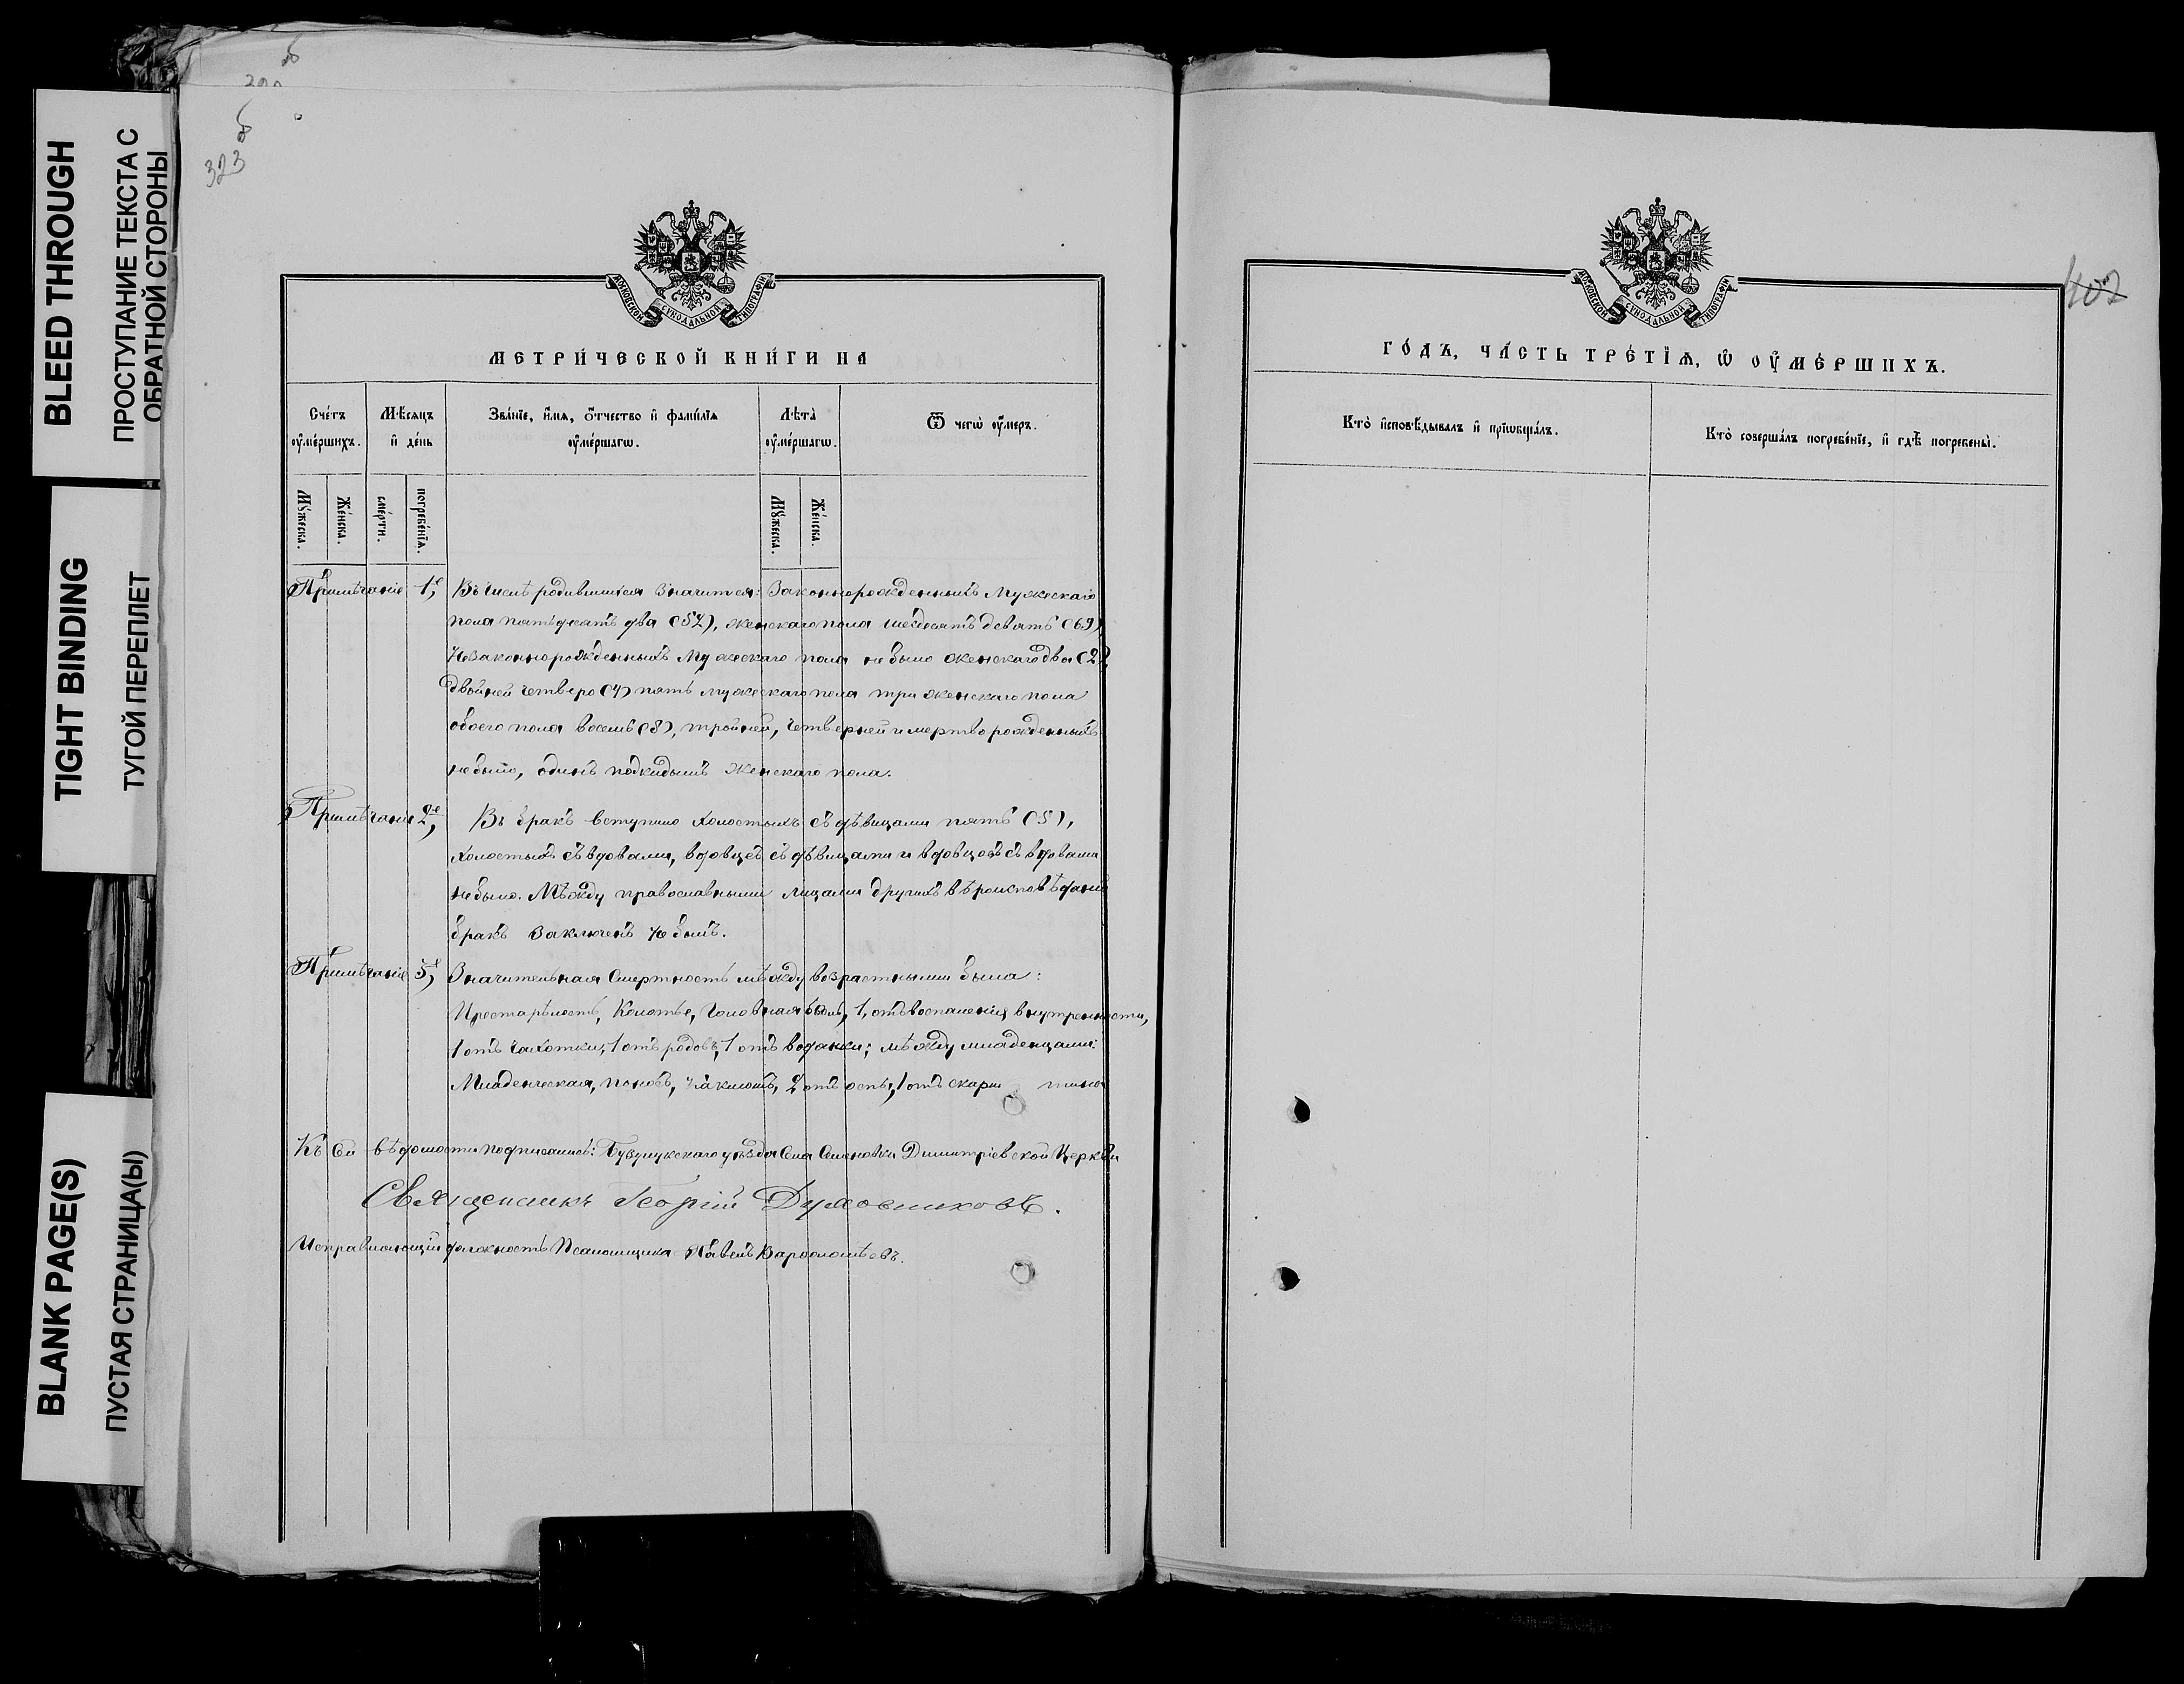 BLEED THROUGH
ПРОСТУПАНИЕ ТЕКСТА С
ОБРАТНОЙ СТОРОНЫ
TIGHT BINDING
ТУГОЙ ПЕРЕПЛЕТ
BLANK PAGE(S)
ПУСТАЯ СТРАНИЦА(Ы)
323 об
МОСКОВСКОЙ СѴНОДАЛЬНОЙ ТИПОГРАФІИ
МЕТРИ́ЧЕСКОЙ КНИ́ГИ НА
Сче́тъ ᲂу҆ме́ршихъ.
Мѣ́сяцъ и҆ де́нь
Зва́нїе, и҆́мѧ, ѻ҆́тчество и҆ фами́лїѧ ᲂу҆ме́ршагѡ.
Лѣ́та ᲂу҆ме́ршагѡ.
Ѿ чегѡ̀ ᲂу҆́меръ.
Мꙋ́жеска.
Же́нска.
сме́рти.
погребе́нїѧ.
Мꙋ́жеска.
Же́нска.
Примѣчаніе 1е, Въ числѣ родившихся значится: Законнорожденныхъ Мужескаго
пола пятьдесятъ два (52), женскаго пола шесдесятъ девять (69)
Незаконнорожденныхъ Мужескаго пола не было женскаго два (2)
двойней четверо (4) пять мужескаго пола три женскаго пола
обоего пола восемь (8), тройней, четверней и мертворожденныхъ
не было, одинъ подкидышъ женскаго пола.
Примѣчаніе 2е, Въ бракъ вступило холостыхъ съ дѣвицами пять (5),
холостыхъ съ вдовами, вдовцевъ съ дѣвицами и вдовцовъ съ вдовами
не было. Мѣжду православными лицами другихъ вѣроисповѣданій
бракъ заключенъ не былъ.
Примѣчаніе 3е, Значительная смертность мѣжду возрастными была:
Престарѣлость, Колотье, Головная боль, 1, отъ воспаленія внутренности,
1 отъ чахотки, 1 отъ родовъ, 1 отъ водянки; мѣжду младенцами:
Младенческая, поносъ, кашель, 2 отъ оспы, 1 отъ скарл тины
Къ сей вѣдомости подписались: Бузулукскаго уѣзда Села Семеновки Димитріевской Церкви
Священникъ Георгій Духовниковъ.
Исправляющій должность Псаломщика Павелъ Варфоломѣевъ.
МОСКОВСКОЙ СѴНОДАЛЬНОЙ ТИПОГРАФІИ
407
ГО́ДЪ, ЧА́СТЬ ТРЕ́ТЇѦ, Ѡ҆ ᲂУ҆МЕ́РШИХЪ.
Кто̀ и҆сповѣ́дывалъ и҆ прїѡбща́лъ.
Кто̀ соверша́лъ погребе́нїе, и҆ гдѣ̀ погребены̀.